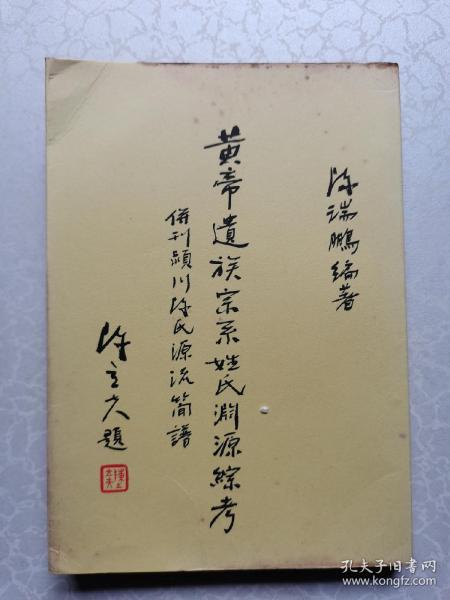 陈瑞鵬编著
黄帝遺族宗系姓氏淵源綜考
併刊颍川陈氏源流简譜
陈立夫題
孔夫子旧书网
www.kongfz.com